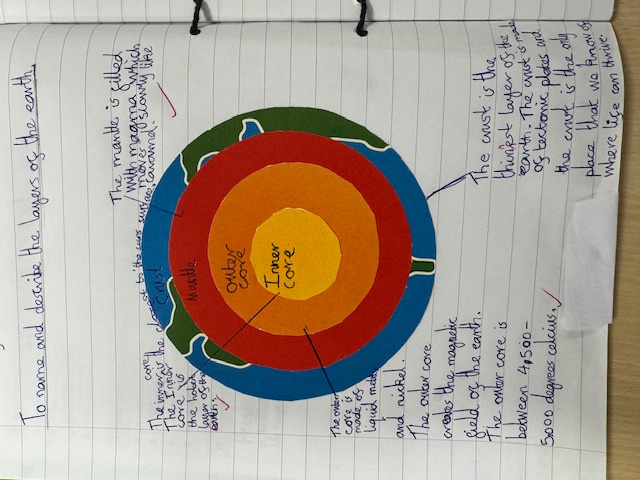 To name and describe the layers of the earth.
The mantle is filled
with magma which
moves slowly like
caramel.
The crust is the
thinest layer of the
earth. The crust is made
of tectonic plates and
the crust is the only
place that we know of
where life can thrive.
Crust
Mantle
outer
core
Inner
core
core
The inner is the closest to the suns surface.
The inner
core is
the hottest
layer of the
earth.
The outer
core is
made of
liquid metal
and nickel.
The outer core
creates the magnetic
field of the earth.
The outer core is
between 4,500-
5000 degrees celcius.